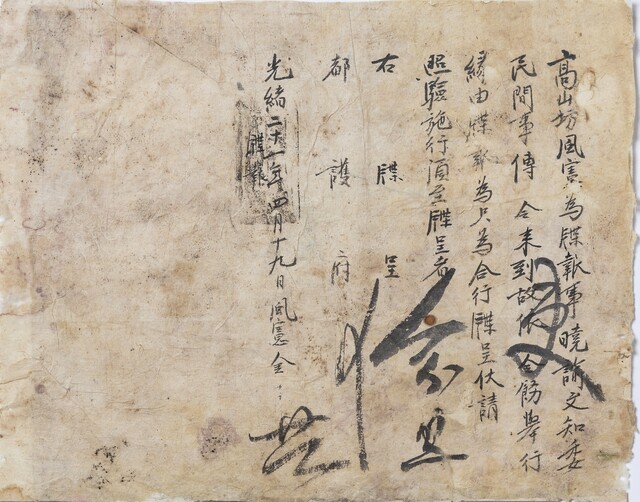 高山坊風憲為牒報事曉諭文知委
民間事傳 令来到故依 令飭舉行
緣由牒報為只為合行牒呈伏請
照驗施行須至牒呈者
右牒呈
都護府
光緒二十一年四月十九日風憲金
牒報